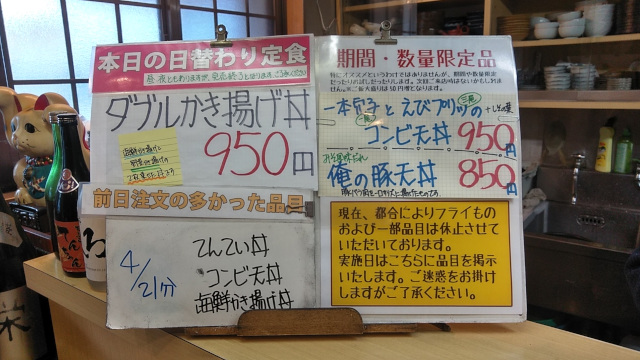 本日の日替わり定食
ダブルかき揚げ丼
海鮮かき揚げと
野菜かき揚げの
950円
前日注文の多かった品目
4/21分
てんてい丼
コンビ天丼
海鮮かき揚げ丼
期間・数量限定品
一本穴子とえびプリプリの
コンビ天丼 950円
俺の豚天丼 850円
現在、都合によりフライもの
および一部品目は休止させて
いただいております。
実施日はこちらに品目を掲示
いたします。ご迷惑をお掛け
しますがご了承ください。